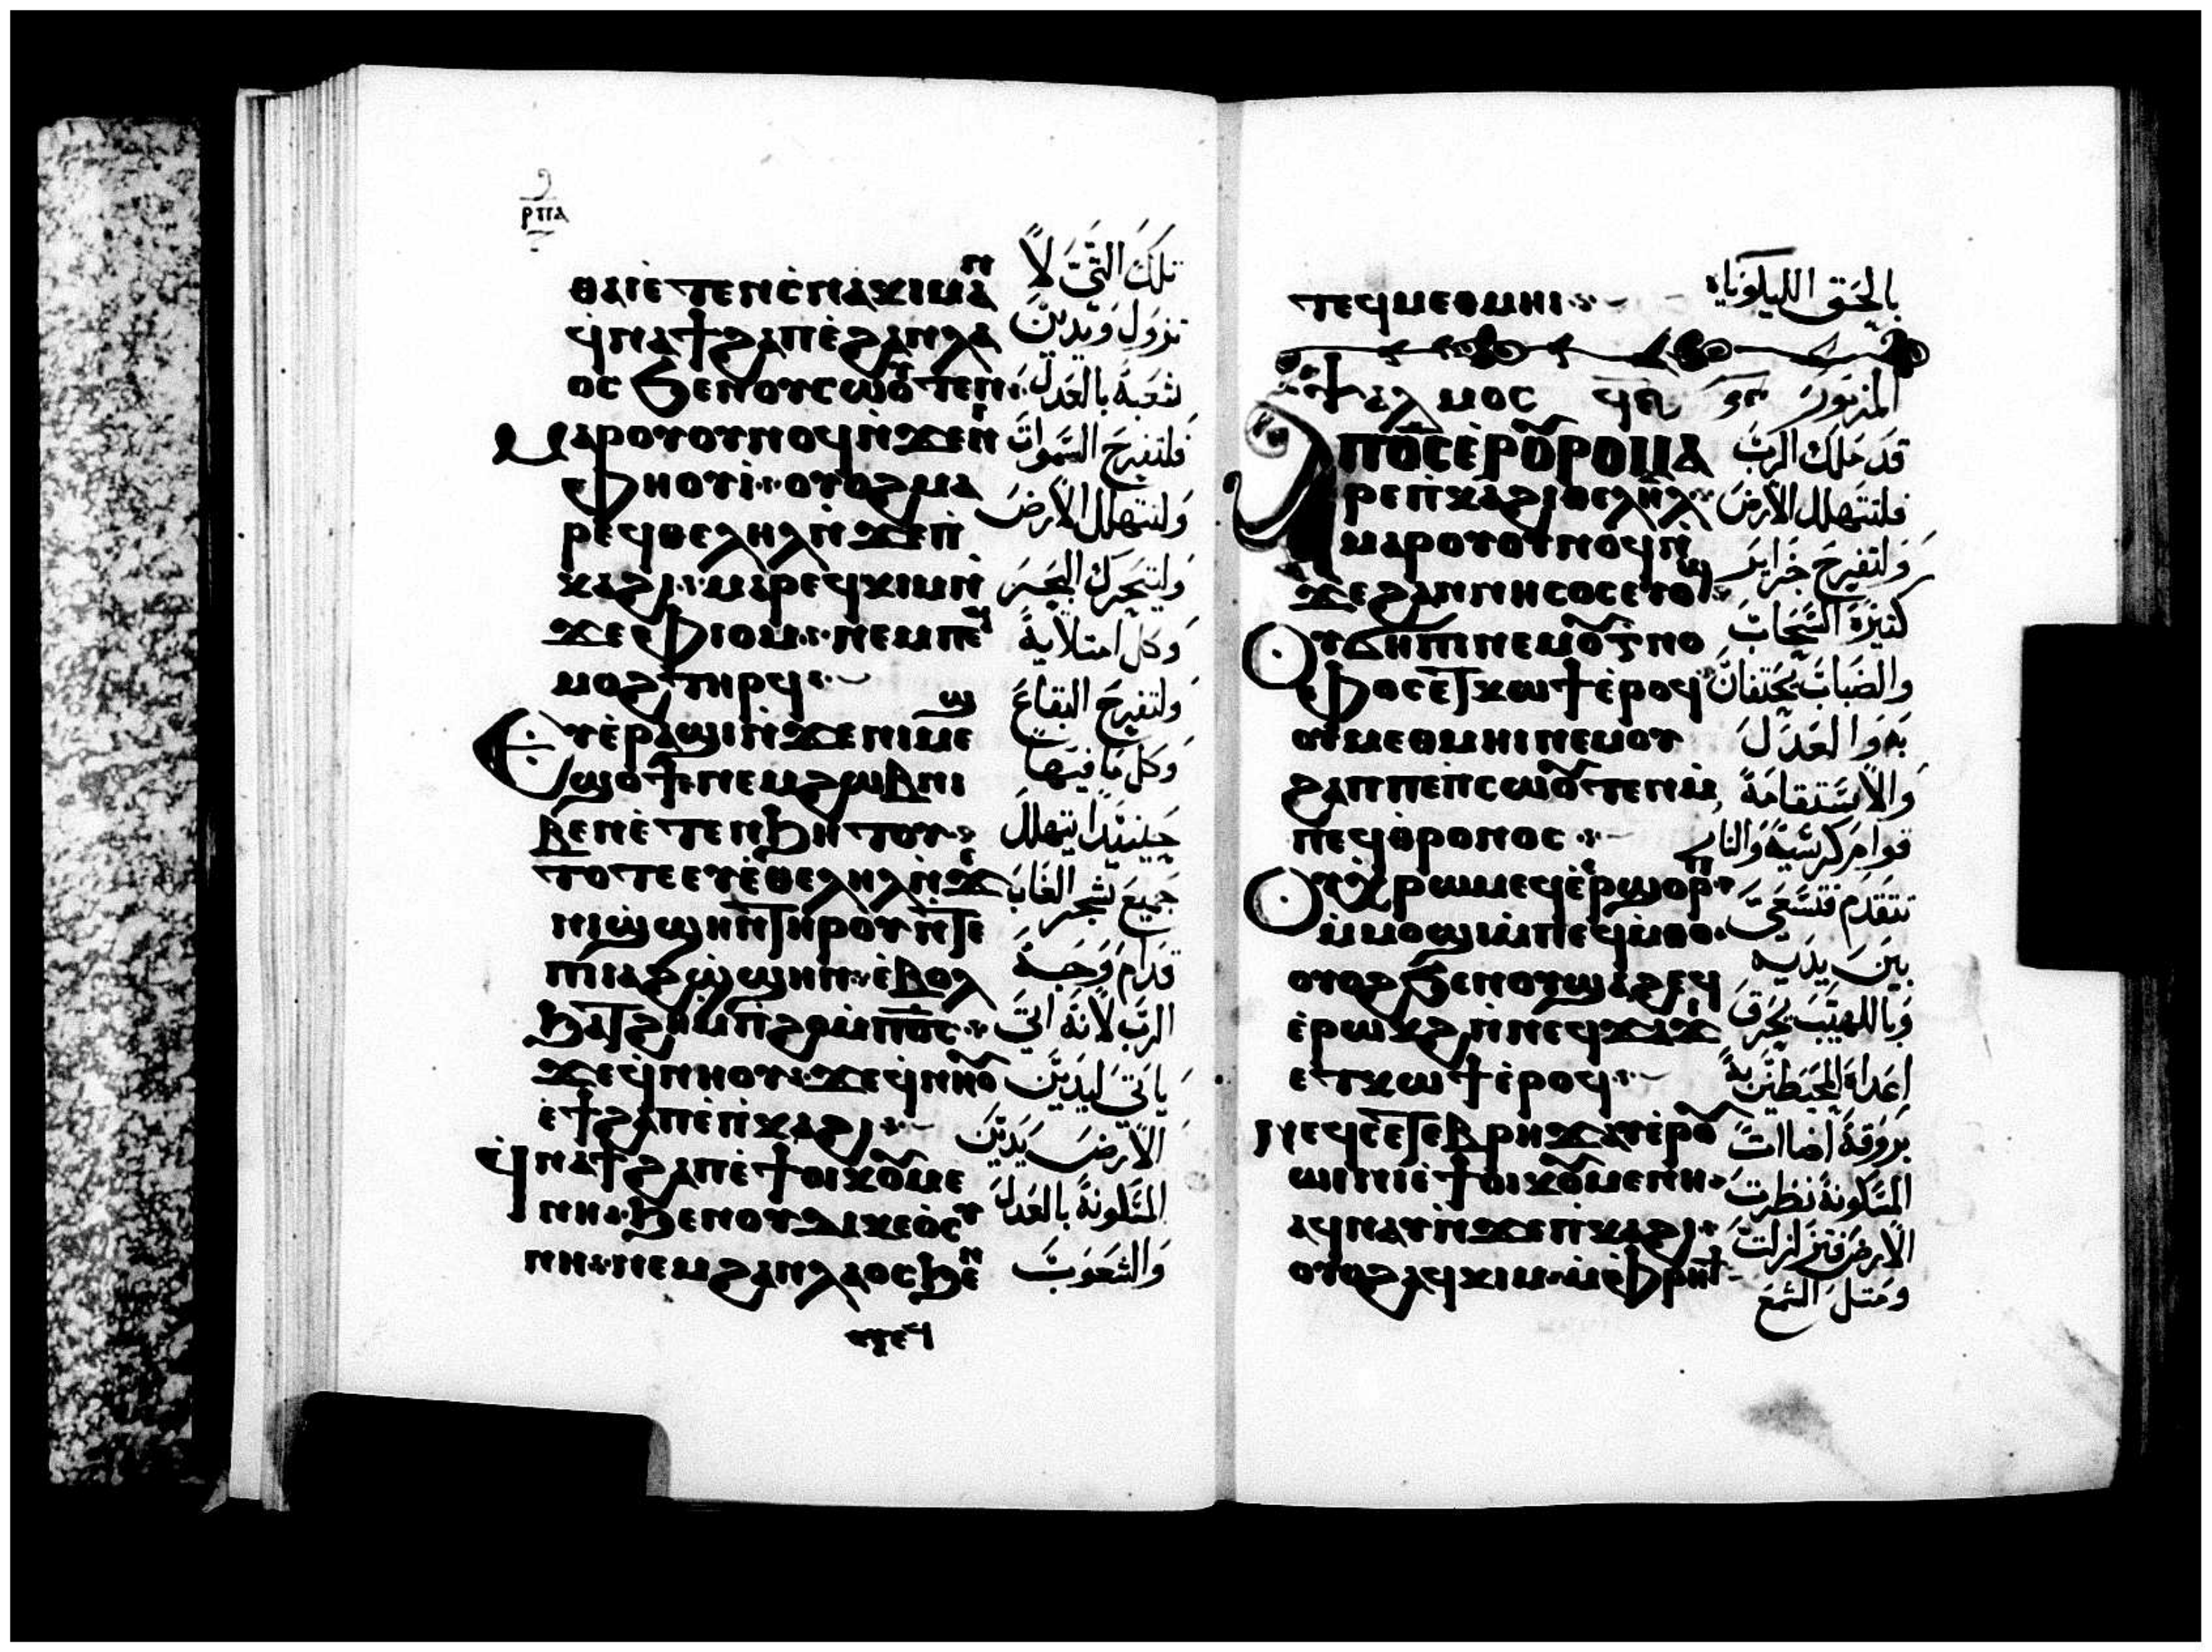 ⲣⲡⲁ
ⲑⲁⲓ ⲉ̀ⲧⲉⲛⲥ̀ⲛⲁⲕⲓⲙⲁⲛ
ϥ̀ⲛⲁϯϩⲁⲡ ⲉ̀ϩⲁⲛⲗⲁ
ⲟⲥ ϧⲉⲛⲟⲩⲥⲱⲟⲩⲧⲉⲛ
ⲙⲁⲣⲟⲩⲟⲩⲛⲟϥ ⲛ̀ϫⲉⲛⲓ
ⲫⲏⲟⲩⲓ̀ ⲟⲩⲟϩ ⲙⲁ
ⲣⲉϥⲑⲉⲗⲏⲗ ⲛ̀ϫⲉⲡ̀
ⲕⲁϩⲓ ⲙⲁⲣⲉϥⲕⲓⲙ ⲛ̀
ϫⲉⲫⲓⲟⲙ ⲛⲉⲙ ⲡⲉϥ
ⲙⲟϩ ⲧⲏⲣϥ
ⲉⲩⲉ̀ⲣⲁϣⲓ ⲛ̀ϫⲉⲛⲓⲙⲉϣ
ϣⲟϯ ⲛⲉⲙ ϩⲱⲃ ⲛⲓ
ⲃⲉⲛ ⲉ̀ⲧⲉⲛϧⲏⲧⲟⲩ
ⲧⲟⲧⲉ ⲉⲩⲉ̀ⲑⲉⲗⲏⲗ ⲛ̀ϫⲉ
ⲛⲓϣ̀ϣⲏⲛ ⲧⲏⲣⲟⲩ ⲛ̀ⲧⲉ
ⲡⲓⲁϩϣ̀ϣⲏⲛ ⲉ̀ⲃⲟⲗ
ϧⲁⲧϩⲏ ⲙ̀ⲡ̀ϩⲟ ⲙ̀ⲡⲟ̅ⲥ̅
ϫⲉϥ̀ⲛⲏⲟⲩ ϫⲉϥ̀ⲛⲏⲟⲩ
ⲉ̀ϯϩⲁⲡ ⲉ̀ⲡ̀ⲕⲁϩⲓ
ϥ̀ⲛⲁϯϩⲁⲡ ⲉ̀ϯⲟⲓⲕⲟⲩⲙⲉ
ⲛⲏ ϧⲉⲛⲟⲩⲇⲓⲕⲉⲟ̀ⲥⲩ
ⲛⲏ ⲛⲉⲙ ϩⲁⲛⲗⲁⲟⲥ ϧⲉⲛ
تلك التي لا
تزول ويدين
شعبه بالعدل
فلتفرح السموات
ولتتهلل الارض
وليتحرك البحر
وكل امتلايه
ولتفرح البقاع
وكل ما فيها
حينيذا يتهلل
جميع شجر الغاب
قدام وجه
الرب لانه اتي
ياتي ليدين
الارض يدين
المسكونة بالعدل
والشعوب
ⲧⲉϥⲙⲉⲑⲙⲏⲓ
ⲯⲁⲗⲙⲟⲥ ϥⲋ
ⲁⲡⲟ̅ⲥ̅ ⲉⲣⲟⲩⲣⲟ ⲙⲁ
ⲣⲉⲡ̀ⲕⲁϩⲓ ⲑⲉⲗⲏⲗ
ⲙⲁⲣⲟⲩⲟⲩⲛⲟϥ ⲛ̀
ϫⲉϩⲁⲛⲛⲏⲥⲟⲥ ⲉⲩⲟϣ
ⲟⲩϭⲏⲡⲓ ⲛⲉⲙ ⲟⲩⲅⲛⲟ
ⲫⲟⲥ ⲉⲧⲕⲱϯ ⲉ̀ⲣⲟϥ
ⲟⲩⲙⲉⲑⲙⲏⲓ ⲛⲉⲙ ⲟⲩ
ϩⲁⲡ ⲡⲉ ⲡ̀ⲥⲱⲟⲩⲧⲉⲛ ⲙ̀
ⲡⲉϥⲑⲣⲟⲛⲟⲥ
ⲟⲩⲭ̀ⲣⲱⲙ ⲉϥⲉ̀ⲉⲣϣⲟⲣⲡ
ⲙ̀ⲙⲟϣⲓ ⲙ̀ⲡⲉϥⲙ̀ⲑⲟ
ⲟⲩⲟϩ ϧⲉⲛⲟⲩϣⲁϩ ⲉϥ
ⲉ̀ⲣⲱⲕϩ ⲛ̀ⲛⲉϥϫⲁϫⲓ
ⲉⲧⲕⲱϯ ⲉ̀ⲣⲟϥ
ⲛⲉϥⲥⲉⲧⲉⲃⲣⲏϫ ⲁⲩⲉⲣⲟⲩ
ⲱⲓⲛⲓ ⲉ̀ϯⲟⲓⲕⲟⲩⲙⲉⲛⲏ
ⲁϥⲛⲁⲩ ⲛ̀ϫⲉⲡ̀ⲕⲁϩⲓ
ⲟⲩⲟϩ ⲁϥⲕⲓⲙ ⲙ̀ⲫⲣⲏϯ
بالحق الليلويا
المزمور
قد ملك الرب
فلتتهلل الارض
ولتفرح جزاير
كثيرة السحاب
والضباب يحتفان
به والعدل
والاستقامة
قوام كرسيه والنار
تتقدم فتسعي
بين يديه
وباللهيب يحرق
اعداه المحيطين به
بروقه اضات
المسكونة نظرت
الارض فتزلزلت
ومثل الشمع